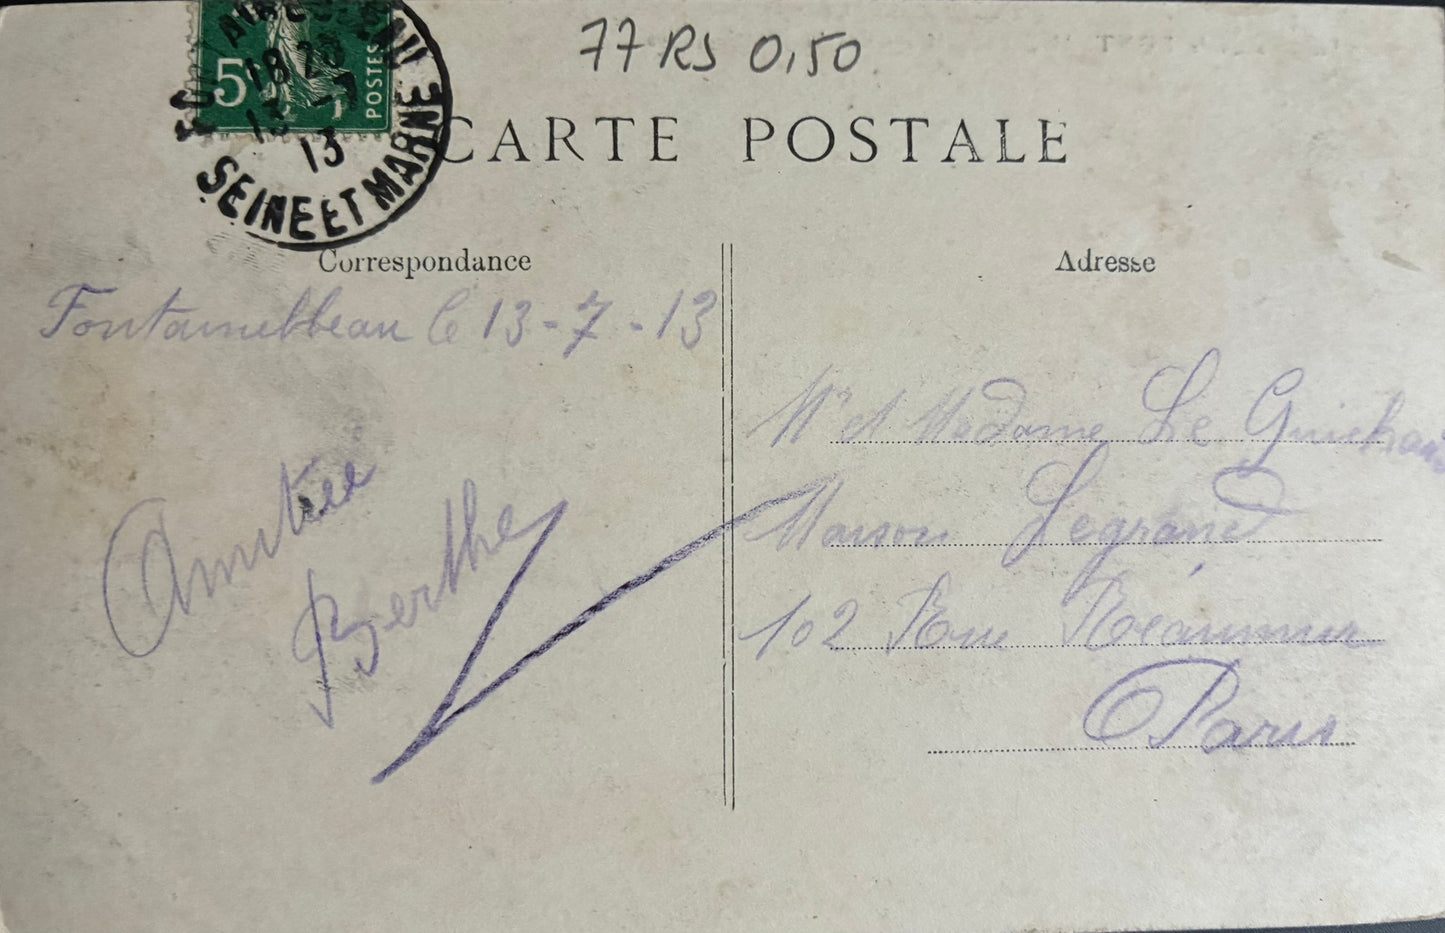 77 RS 0,50
5 POSTES
18 20
13 - 7
13
SEINE ET MARNE
CARTE POSTALE
Correspondance
Adresse
Fontainebleau le 13-7-13
Mr et Madame Le
Maison Legrand
102 Rue Réaumur
Paris
Amitiée
Berthe